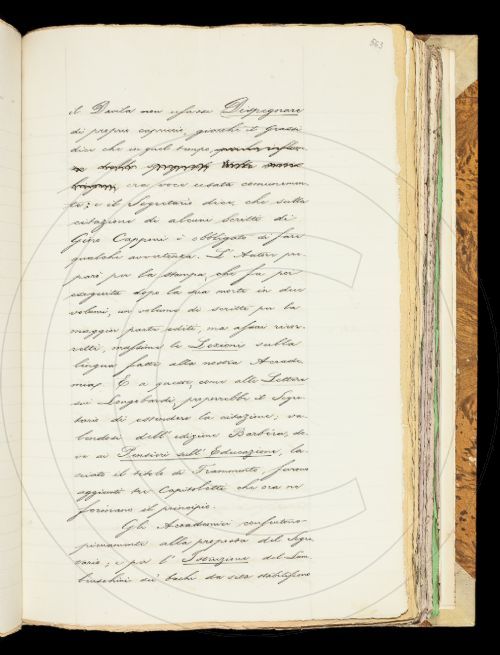 563
il Davila non usasse Dispegnare
di proprio capriccio, giacchè il Grassi
dice che in quel tempo,
era voce usata comunemen-
te; e il Segretario dice, che sulla
citazione di alcuni scritti di
Gino Capponi è obbligato di fare
qualche avvertenza. L'Autore pre-
parò per la stampa, che fu poi
eseguita dopo la sua morte in due
volumi, un volume di scritti per la
maggior parte editi, ma assai ricor-
retti, massime le Lezioni sulla
lingua fatte alla nostra Accade-
mia. E a queste, come alle Lettere
sui Longobardi, proporrebbe il Segre-
tario di estendere la citazione; va-
lendosi dell'edizione Barbèra, do-
ve ai Pensieri sull'Educazione, la-
sciato il titolo di Frammento, furono
aggiunti tre Capitoletti che ora ne
formano il principio.
Gli Accademici consentono
pienamente alla proposta del Segre-
tario; e per l'Istruzione del Lam-
bruschini sui bachi da seta stabiliscono